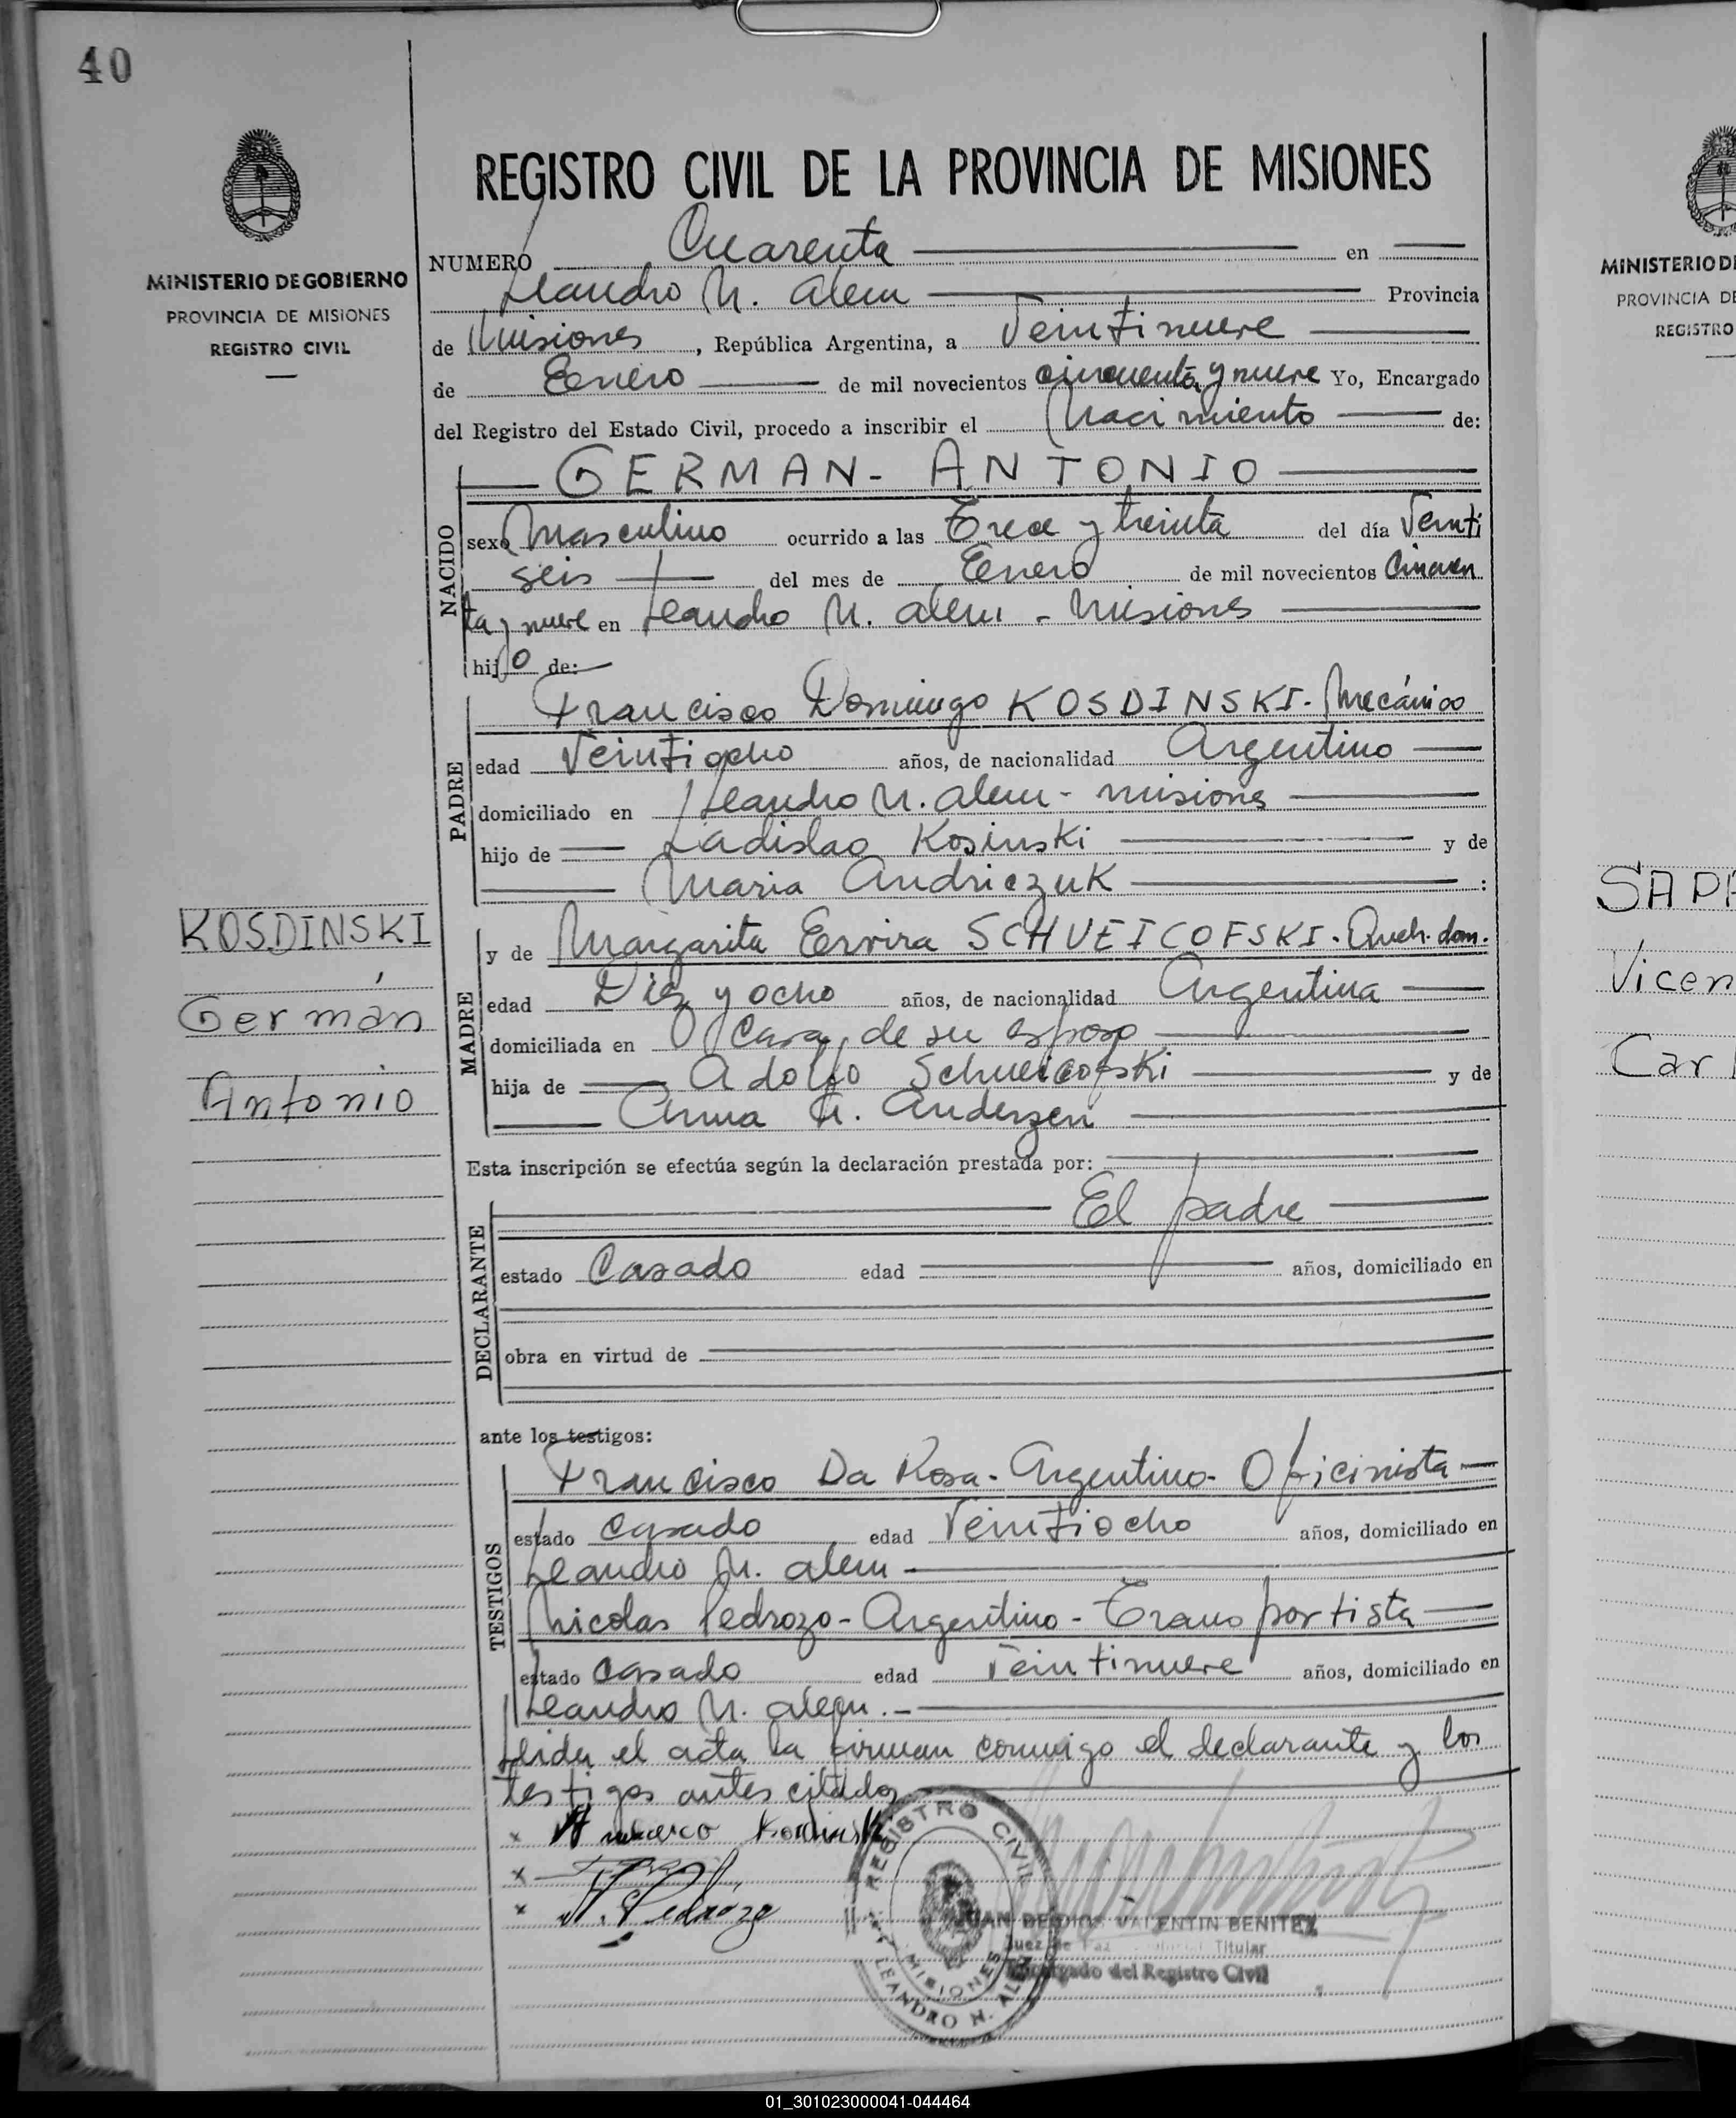 40
MINISTERIO DE GOBIERNO
PROVINCIA DE MISIONES
REGISTRO CIVIL
KOSDINSKI
,
Germán
Antonio
REGISTRO CIVIL DE LA PROVINCIA DE MISIONES
NUMERO Cuarenta en
Leandro N. Alem Provincia
de Misiones, República Argentina, a Veintinueve
de Eenero de mil novecientos cincuenta y nueve Yo, Encargado
del Registro del Estado Civil, procedo a inscribir el Nacimiento de:
NACIDO
GERMAN - ANTONIO
sexo Masculino ocurrido a las Trece y treinta del día Veinti
seis del mes de Eenero de mil novecientos Cincuen
ta y nueve en Leandro N. Alem - Misiones
hijo de:
PADRE
Francisco Domingo KOSDINSKI - Mecánico
edad Veintiocho años, de nacionalidad Argentino
domiciliado en Leandro N. Alem - Misiones
hijo de Ladislao Kosinski y de
Maria Andriczuk :
MADRE
y de Margarita Ervira SCHVEICOFSKI. Queh. dom.
edad Diez y ocho años, de nacionalidad Argentina
domiciliada en Casa de su esposo
hija de Adolfo Schveicofski y de
Anna N. Anderzen
Esta inscripción se efectúa según la declaración prestada por:
DECLARANTE
El padre
estado Casado edad años, domiciliado en
obra en virtud de
ante los testigos:
TESTIGOS
Francisco Da Rosa - Argentino - Oficinista
estado Casado edad Veintiocho años, domiciliado en
Leandro N. Alem -
Nicolas Pedrozo - Argentino - Transportista
estado Casado edad Veintinueve años, domiciliado en
Leandro N. Alem . -
Leida el acta la firman conmigo el declarante y los
testigos antes citados
x
x
x N. Pedrozo
REGISTRO CIVIL
MISIONES
LEANDRO N. ALEM
JUAN DE DIOS VALENTIN BENITEZ
Juez de Paz Titular
Encargado del Registro Civil
MINISTERIO D
PROVINCIA DE
REGISTRO
SAP
Vicen
Car
01_301023000041-044464